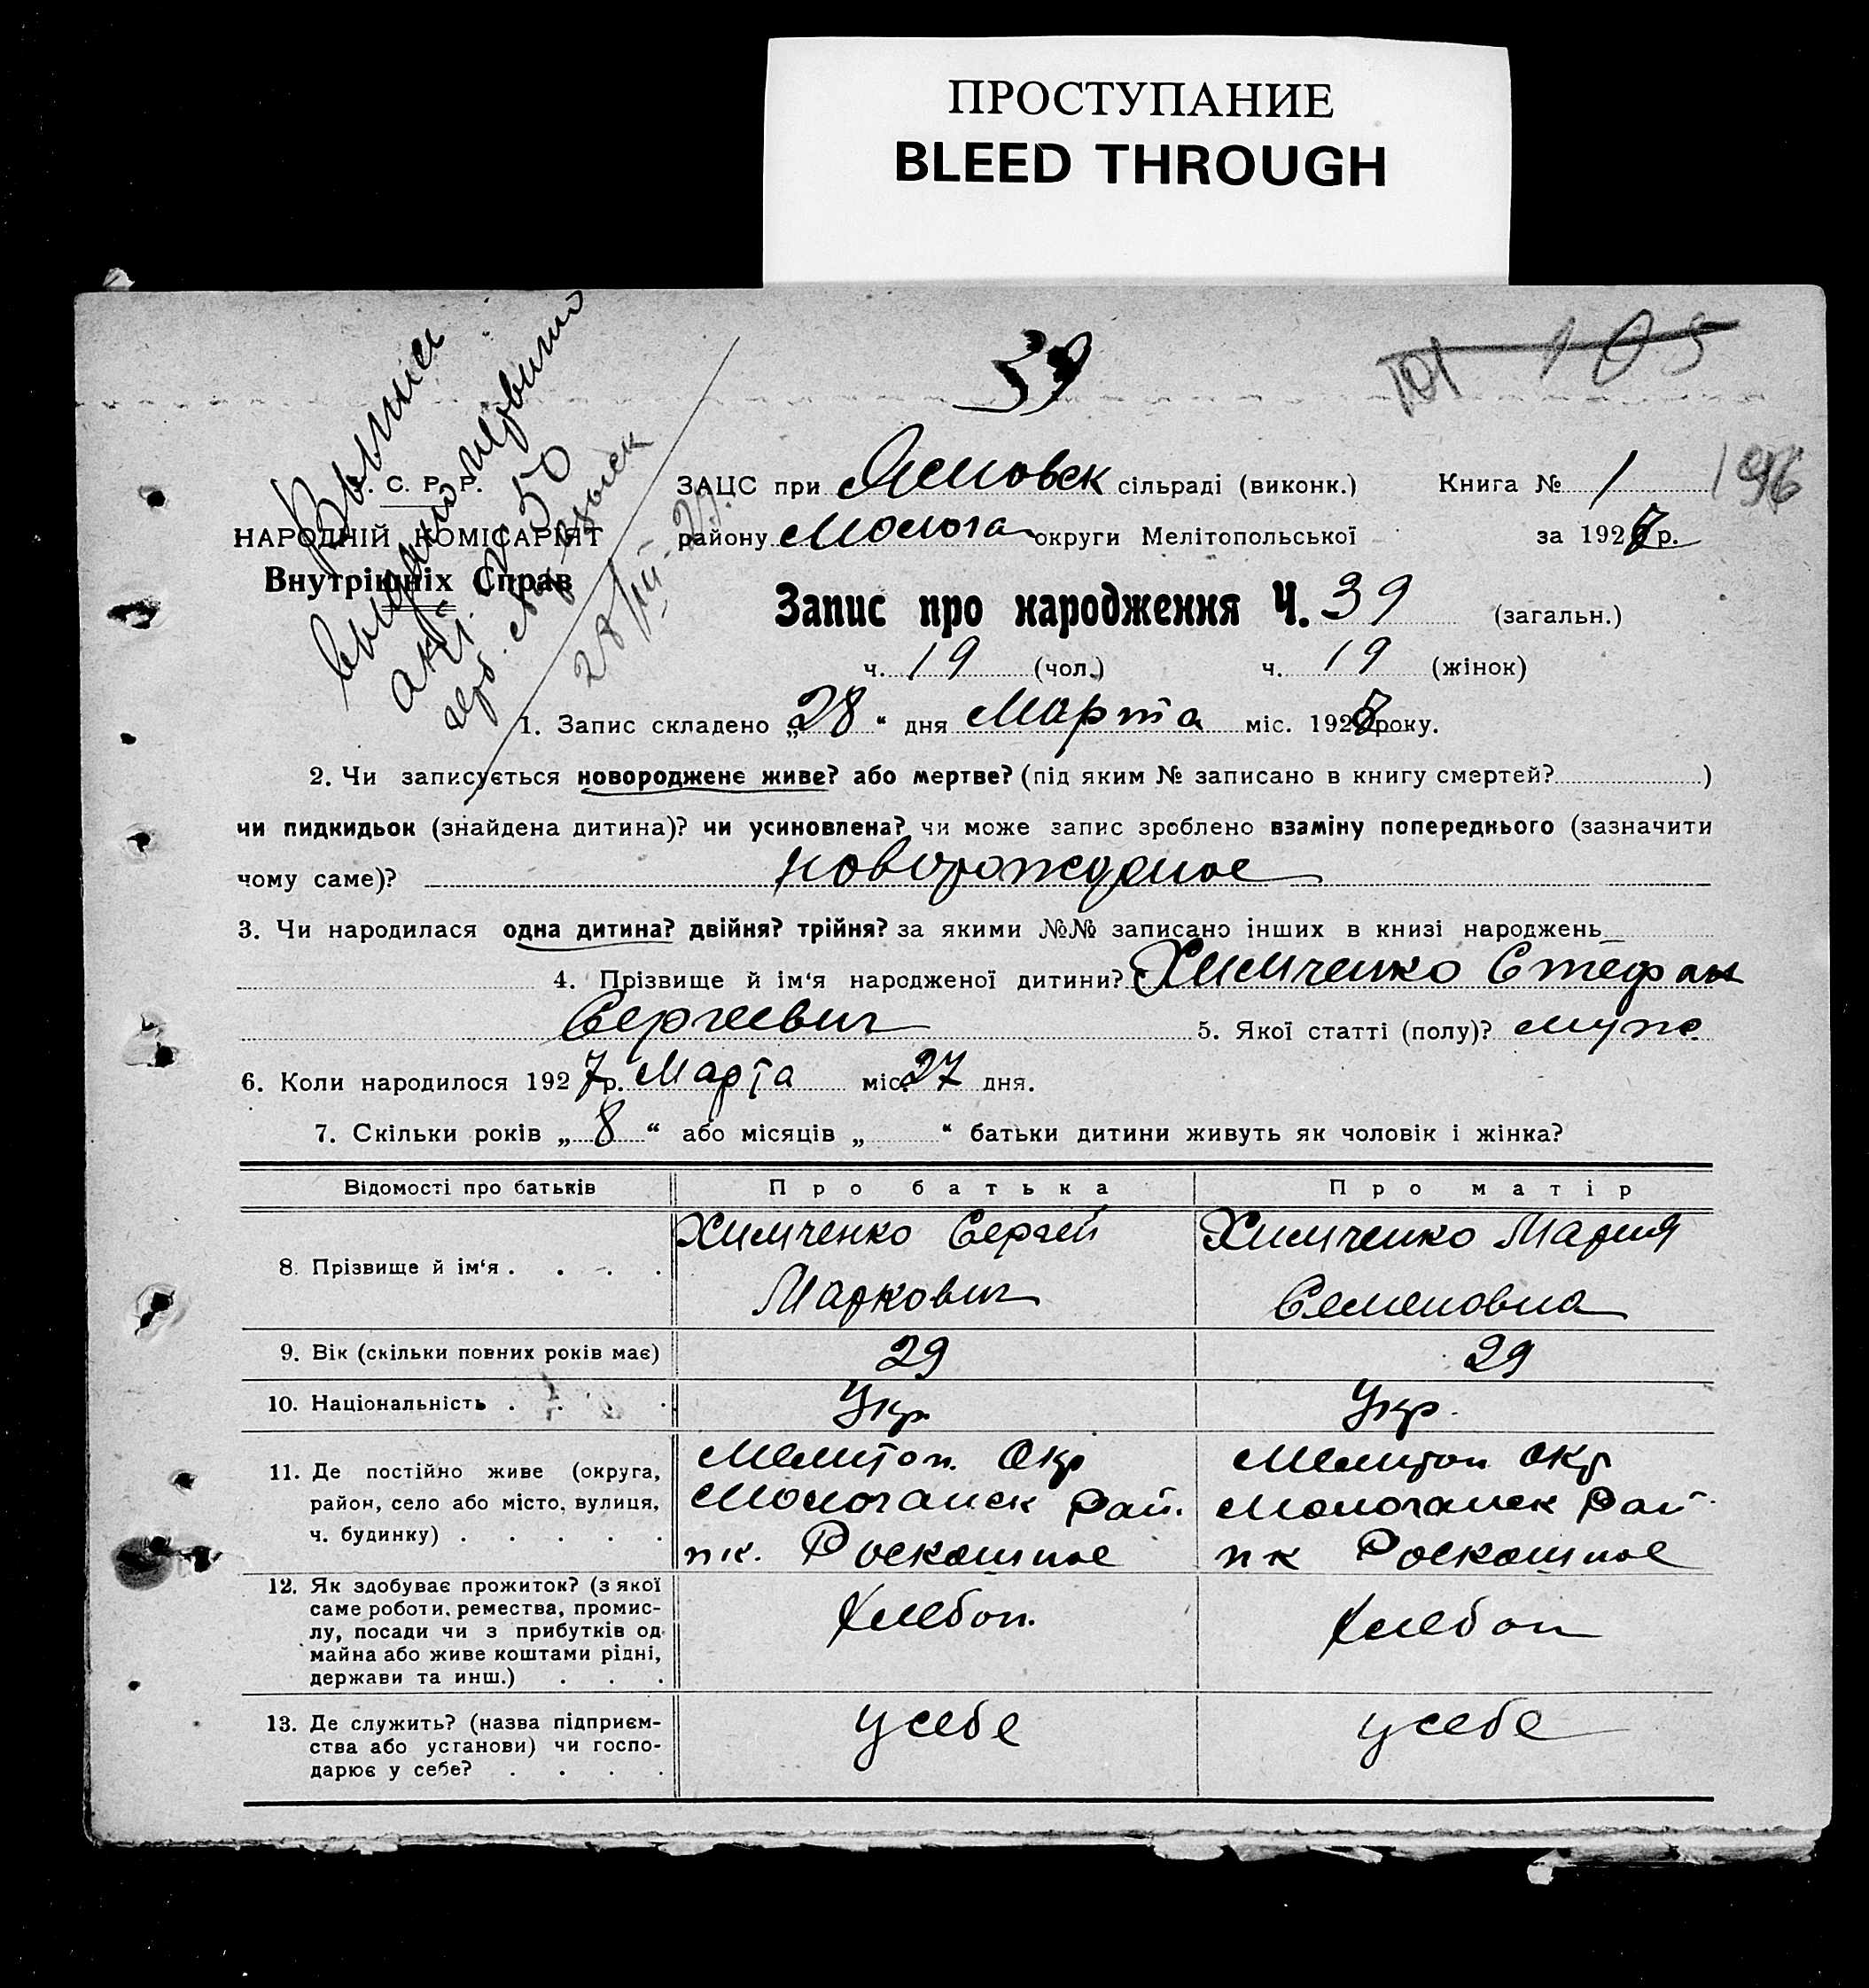 ПРОСТУПАНИЕ
BLEED THROUGH
39
101 105
196
Выпись
выдано
акт. 250
28/III-29.
. С. Р. Р.
НАРОДНІЙ КОМІСАРІЯТ
Внутрішніх Справ
ЗАЦС при сільраді (виконк.) Книга № 1
району Молога округи Мелітопольської за 1927 р.
Запис про народження Ч. 39 (загальн.)
ч. 19 (чол.) ч. 19 (жінок)
1. Запис складено „28“ дня Марта міс. 1927 року.
2. Чи записується новороджене живе? або мертве? (під яким № записано в книгу смертей? )
чи пидкидьок (знайдена дитина)? чи усиновлена? чи може запис зроблено взаміну попереднього (зазначити
чому саме)? новорожденое
3. Чи народилася одна дитина? двійня? трійня? за якими №№ записано інших в книзі народжень
4. Прізвище й ім‘я народженої дитини? Химченко Стефан
Сергеевич 5. Якої статті (полу)? муж.
6. Коли народилося 1927 р. Марта міс. 27 дня.
7. Скільки років „ 8 “ або місяців „ “ батьки дитини живуть як чоловік і жінка?
Відомості про батьків Про батька Про матір
8. Прізвище й ім‘я . . . . Химченко Сергей Химченко Мария
Маркович Семеновна
9. Вік (скільки повних років має) 29 29
10. Національність . . . Укр. Укр.
11. Де постійно живе (округа, Мелитоп. Окр Мелитоп Окр
район, село або місто, вулиця, Молочанск Рай. Молочанск Рай
ч. будинку) . . . . . пк. Роскошное пк Роскошное
12. Як здобуває прожиток? (з якої
саме роботи, ремества, промис- Хлебоп. Хлебоп
лу, посади чи з прибутків од
майна або живе коштами рідні,
держави та инш.) . . .
13. Де служить? (назва підприєм- у себе у себе
ства або установи) чи госпо-
дарює у себе? . . . .